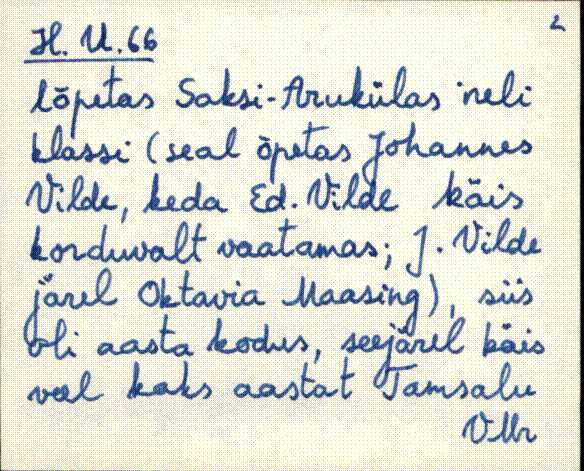 2
H. U. 66
lõpetas Saksi-Arukülas neli
klassi (seal õpetas Johannes
Vilde, keda Ed. Vilde käis
korduvalt vaatamas; J. Vilde
järel Oktavia Maasing), siis
oli aasta kodus, seejärel käis
veel kaks aastat Tamsalu
VMr